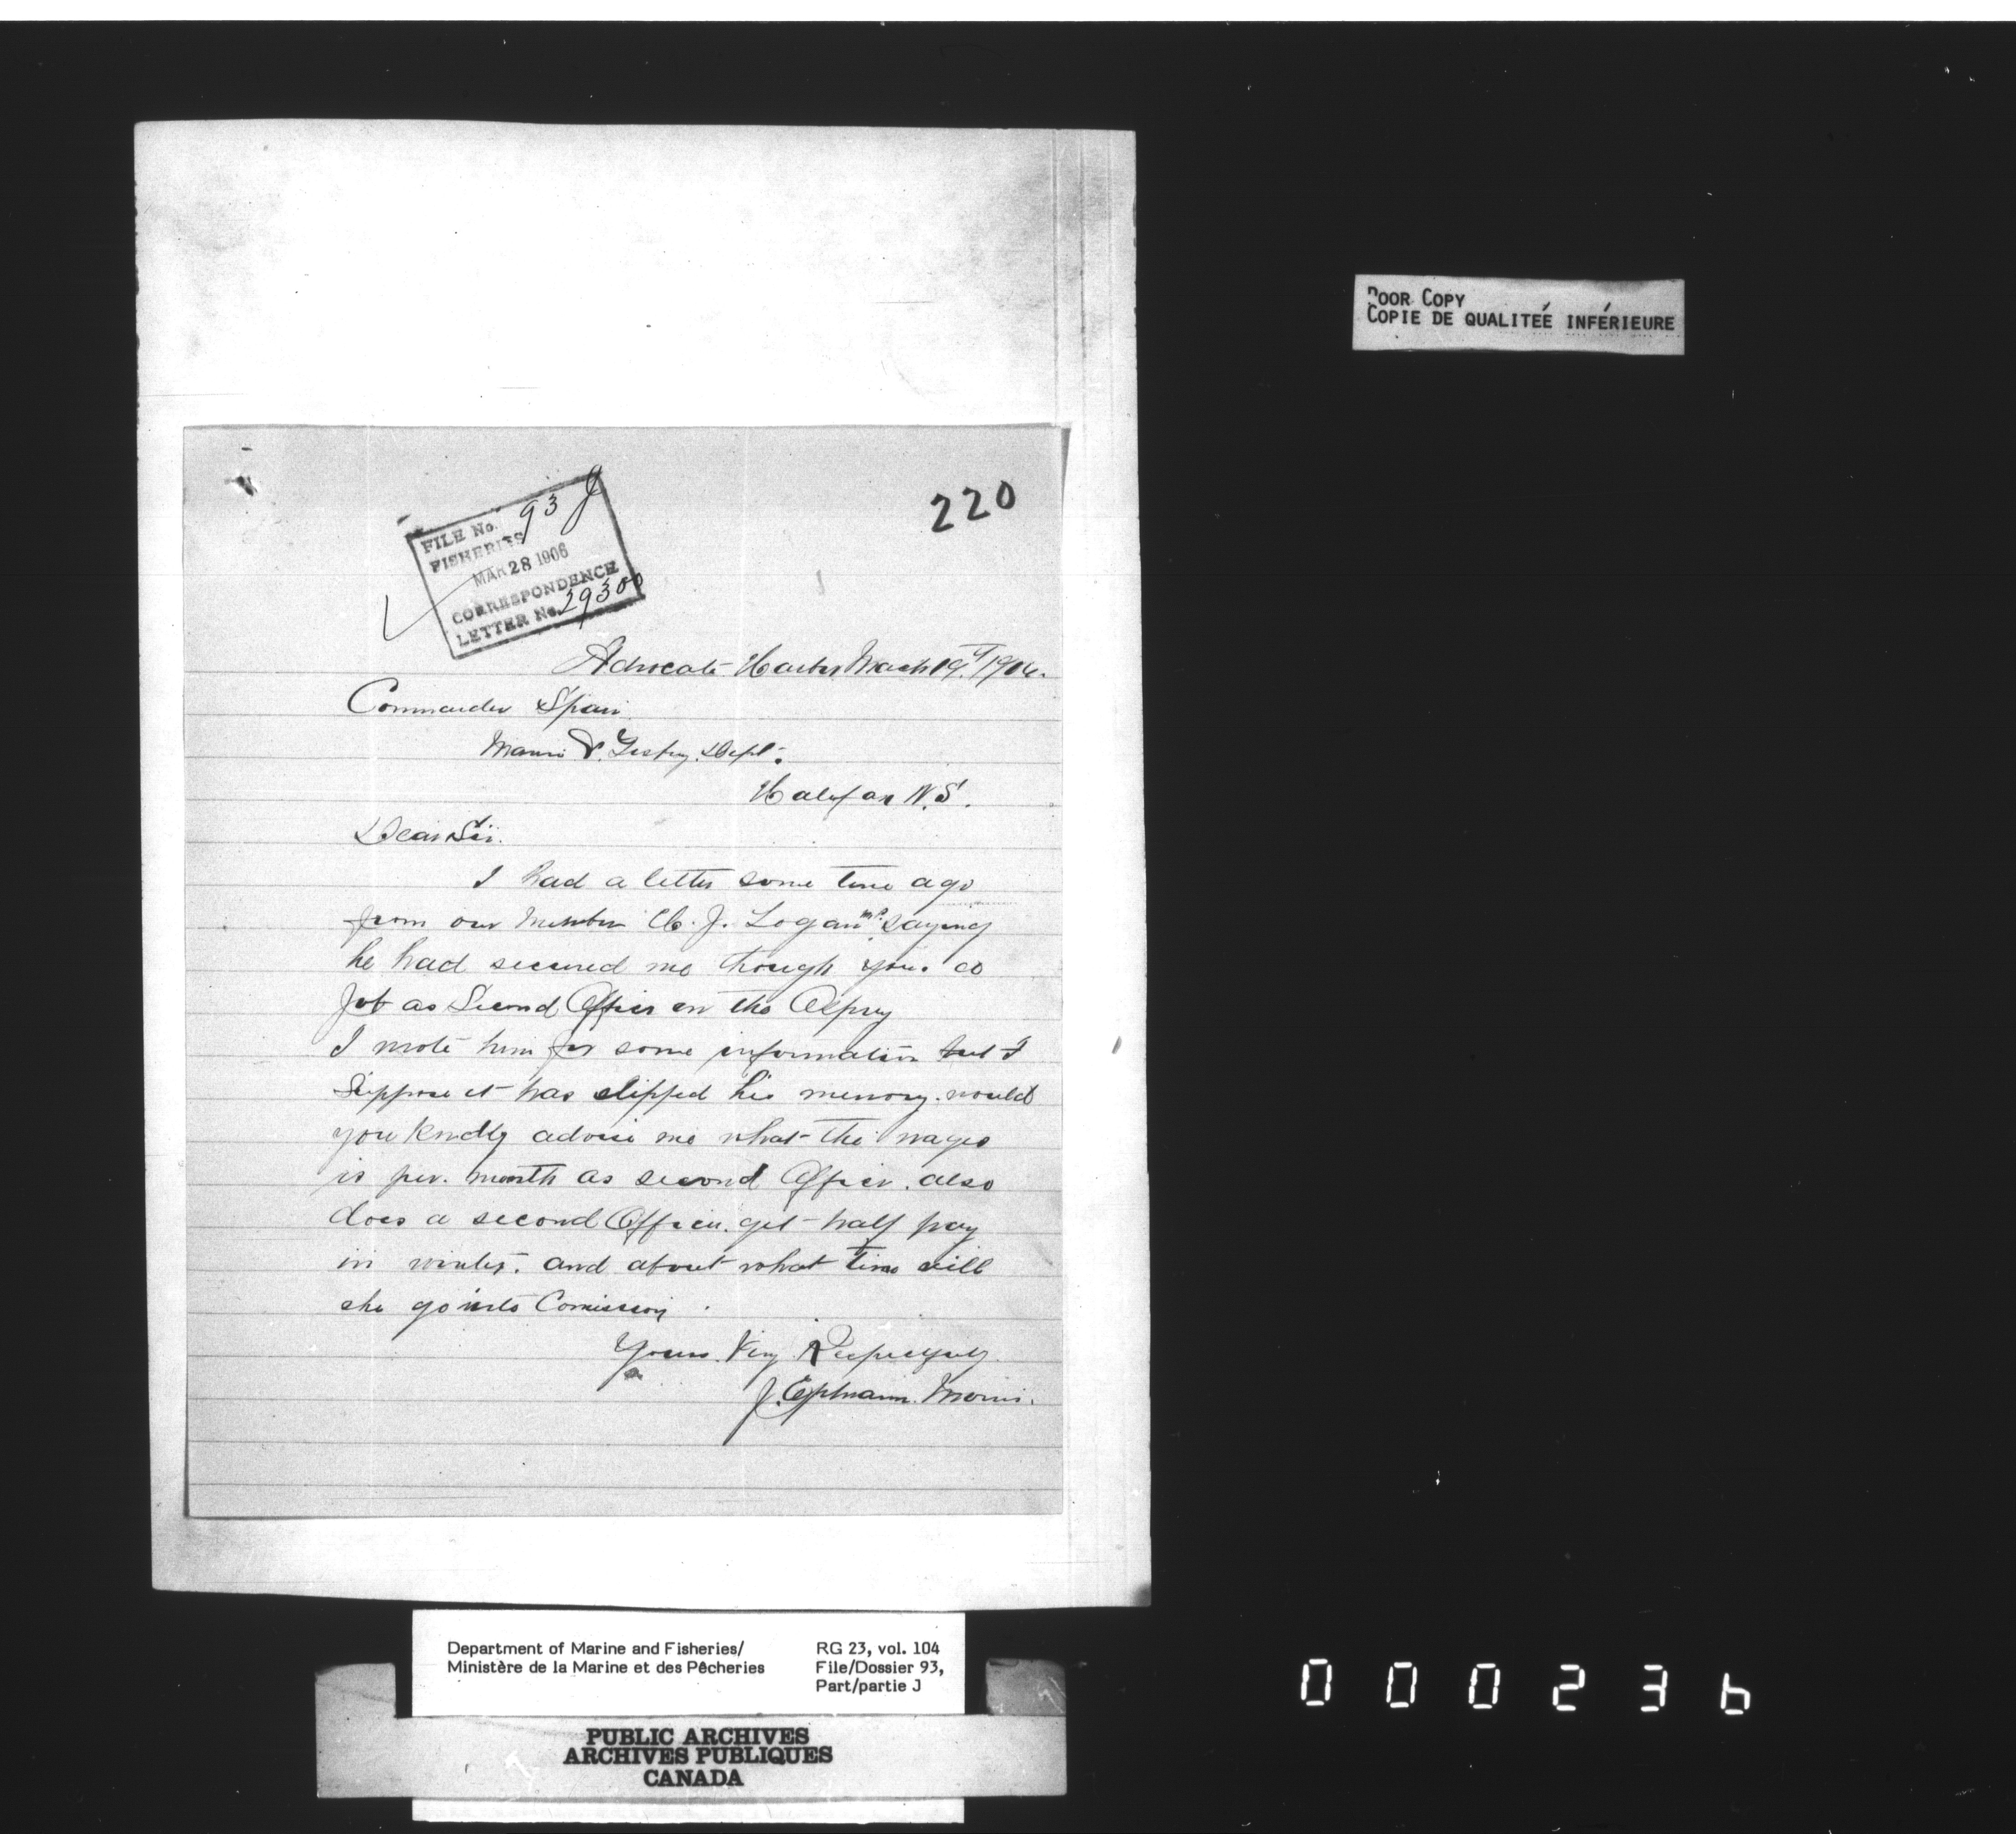 POOR COPY
COPIE DE QUALITEÉ INFÉRIEURE
220
FILE No. 93 J
FISHERIES
MAR 28 1906
CORRESPONDENCE
LETTER No. 29300
Advocate Harbor March 19th 1906.
Commander Spain
Marine & Dept.
Halifax N.S.
Dear Sir.
I had a letter some time ago
from our member H. J. Logan M.P. saying
he had secured me through you. a
Job as Second Officer on the Osprey
I wrote him for some information but I
Suppose it has slipped his memory. would
you kindly advise me what the wages
is per. month as second Officer. also
does a second Officer. get half pay
in winter. and about what time will
she go into Comission.
Yours. Very Respectfully
J. Ephraim. Morris.
Department of Marine and Fisheries/
Ministère de la Marine et des Pêcheries
RG 23, vol. 104
File/Dossier 93,
Part/partie J
PUBLIC ARCHIVES
ARCHIVES PUBLIQUES
CANADA
000236